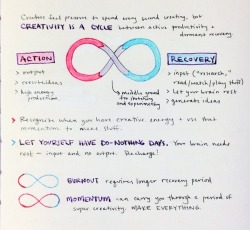 Creatives feel pressure to spend every second creating, but
CREATIVITY IS A CYCLE between active productivity +
dormant recovery.
ACTION
RECOVERY
> output
> create ideas
> high energy production
> middle ground for starting and
> input ("research,"
read/watch/play stuff)
> let your brain rest
> generate ideas
> Recognize when you have creative energy + use that
momentum to make stuff.
> LET YOURSELF HAVE DO-NOTHING DAYS. Your brain needs
rest – input and no output. Recharge!
BURNOUT requires longer recovery period
MOMENTUM can carry you through a period of
super creativity. MAKE EVERYTHING.